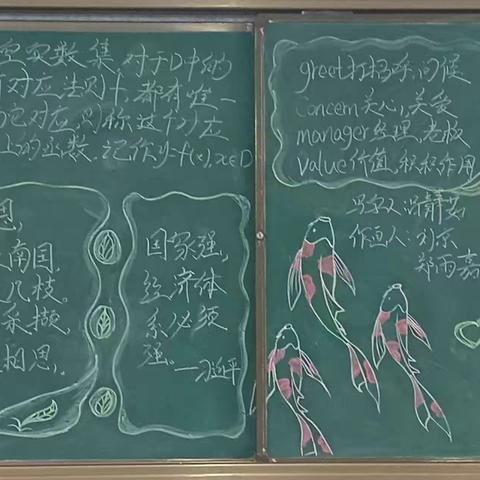 定实数集对于D中的
对应法则f,都有唯一
它对应,则称这个对应
上的函数,记作y=f(x),x∈D
思,
南国
几枝。
采撷,
相思,
国家强,
经济体
系必须
强。
—习近平
greet 打招呼,问候
Concern 关心,关爱
manager 经理,老板
Value 价值,积积作用
写字人:冯静茹
作画人:刘京
郑雨嘉